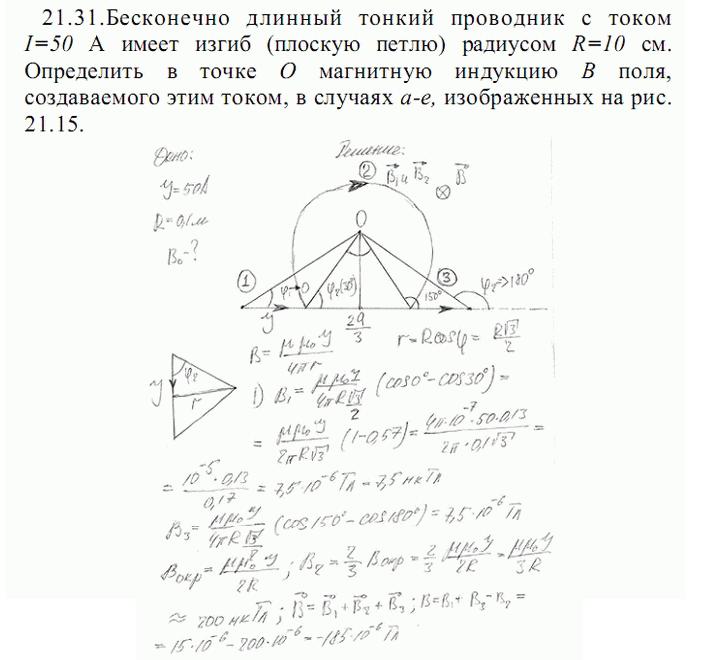 21.31.Бесконечно длинный тонкий проводник с током
I=50 А имеет изгиб (плоскую петлю) радиусом R=10 см.
Определить в точке О магнитную индукцию В поля,
создаваемого этим током, в случаях а-е, изображенных на рис.
21.15.
Дано: Решение:
У=50А
R=0,1м
B₀-?
② B⃗₁ и B⃗₂ B⃗ ⊗
O
① φ₁→0 φ₂(30°) 150° ③ φ₂→180°
У
B = μμ₀У/4πr r=Rcosφ= R√3/2
У φ₂ r
1) B₁= μμ₀У/(4πR√3/2) (cos0°-cos30°)=
= μμ₀У/2πR√3 (1-0,57)= 4π·10⁻⁷·50·0,13/2π·0,1√3 =
= 10⁻⁵·0,13/0,17 = 7,5·10⁻⁶ Тл = 7,5 мкТл
B₃= μμ₀У/(4πR√3/2) (cos150°-cos180°)=7,5·10⁻⁶ Тл
Bокр= μμ₀У/2R ; B₂= 2/3 Bокр= 2/3 μμ₀У/2R = μμ₀У/3R
≈ 200 мкТл ; B⃗=B⃗₁+B⃗₂+B⃗₃ ; B=B₁+B₃-B₂=
= 15·10⁻⁶-200·10⁻⁶=-185·10⁻⁶ Тл